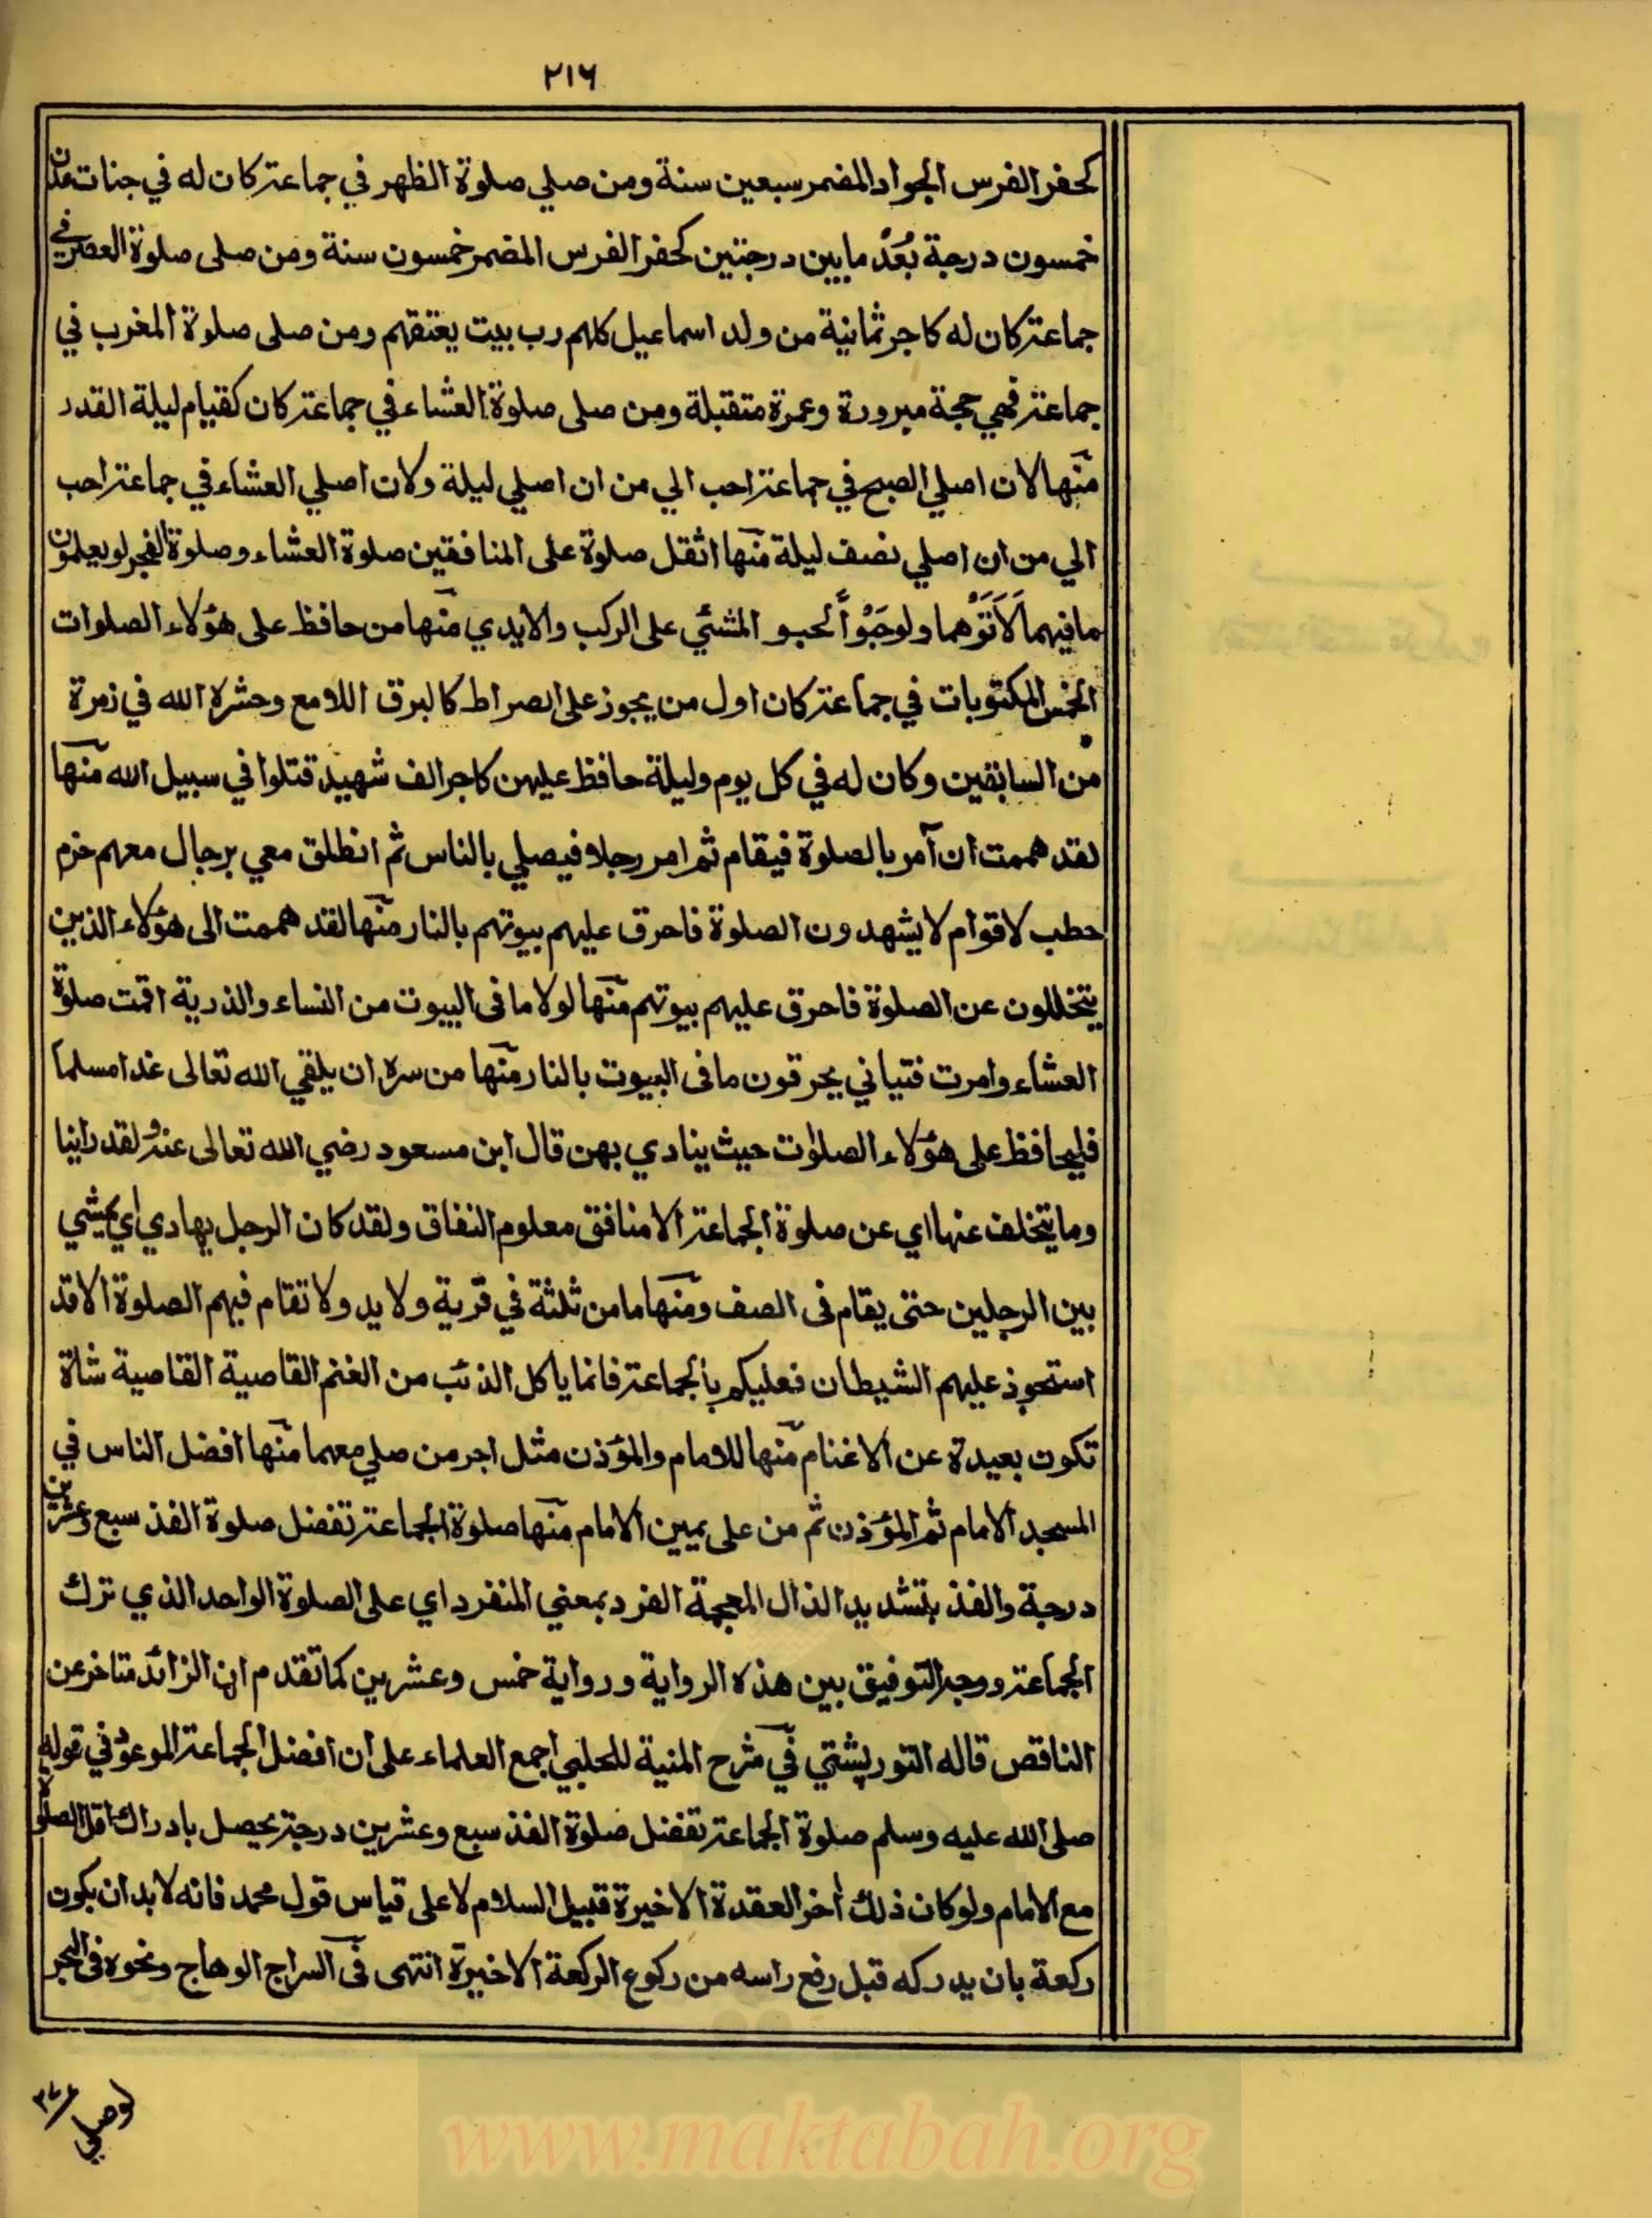 ٢١٦
كحفر الفرس الجواد المضمر سبعين سنة ومن صلي صلوة الظهر في جماعة كان له في جنات عدن
خمسون درجة بُعْدُ ما بين درجتين كحفر الفرس المضمر خمسون سنة ومن صلى صلوة العصر في
جماعة كان له كاجر ثمانية من ولد اسماعيل كلهم رب بيت يعتقهم ومن صلى صلوة المغرب في
جماعة فهي حجة مبرورة وعمرة متقبلة ومن صلى صلوة العشاء في جماعة كان كقيام ليلة القدر
منها لان اصلي الصبح في جماعة احب الي من ان اصلي ليلة ولان اصلي العشاء في جماعة احب
الي من ان اصلي نصف ليلة منها اثقل صلوة على المنافقين صلوة العشاء وصلوة الفجر لو يعلمون
ما فيهما لَاَتَوْهما ولو حَبْوًا الحبو المشي على الركب والايدي منها من حافظ على هؤلاء الصلوات
الخمس المكتوبات في جماعة كان اول من يجوز على الصراط كالبرق اللامع وحشره الله في زمرة
من السابقين وكان له في كل يوم وليلة حافظ عليهن كاجر الف شهيد قتلوا في سبيل الله منها
لقد هممت ان آمر بالصلوة فيقام ثم امر رجلا فيصلي بالناس ثم انطلق معي برجال معهم حزم
حطب لاقوام لا يشهدون الصلوة فاحرق عليهم بيوتهم بالنار منها لقد هممت الى هؤلاء الذين
يتخللون عن الصلوة فاحرق عليهم بيوتهم منها لولا ما فى البيوت من النساء والذرية اقمت صلوة
العشاء وامرت فتياني يحرقون ما فى البيوت بالنار منها من سره ان يلقي الله تعالى غدا مسلما
فليحافظ على هؤلاء الصلوٰت حيث ينادي بهن قال ابن مسعود رضي الله تعالى عنه ولقد راينا
وما يتخلف عنها اي عن صلوة الجماعة الا منافق معلوم النفاق ولقد كان الرجل يهادي اي يمشي
بين الرجلين حتى يقام فى الصف ومنها ما من ثلثة في قرية ولا يد ولا تقام فيهم الصلوة الا قد
استحوذ عليهم الشيطان فعليكم بالجماعة فانما ياكل الذئب من الغنم القاصية القاصية شاة
تكون بعيدة عن الاغنام منها للامام والمؤذن مثل اجر من صلي معهما منها افضل الناس في
المسجد الامام ثم المؤذن ثم من على يمين الامام منها صلوة الجماعة تفضل صلوة الفذ سبع وعشرين
درجة والفذ بتشديد الذال المعجمة الفرد بمعني المنفرد اي على الصلوة الواحد الذي ترك
الجماعة ووجه التوفيق بين هذه الرواية ورواية خمس وعشرين كما تقدم ان الزائد متاخر عن
الناقص قاله التوربشتي في شرح المنية للحلبي اجمع العلماء على ان افضل الجماعة الموعود في قوله
صلى الله عليه وسلم صلوة الجماعة تفضل صلوة الفذ سبع وعشرين درجة يحصل بادراك اقل الصلوة
مع الامام ولو كان ذلك آخر العقدة الاخيرة قبيل السلام لا على قياس قول محمد فانه لا بد ان يكون
ركعة بان يدركه قبل رفع راسه من ركوع الركعة الاخيرة انتهى فى السراج الوهاج ونحوه فى البحر
www.maktabah.org